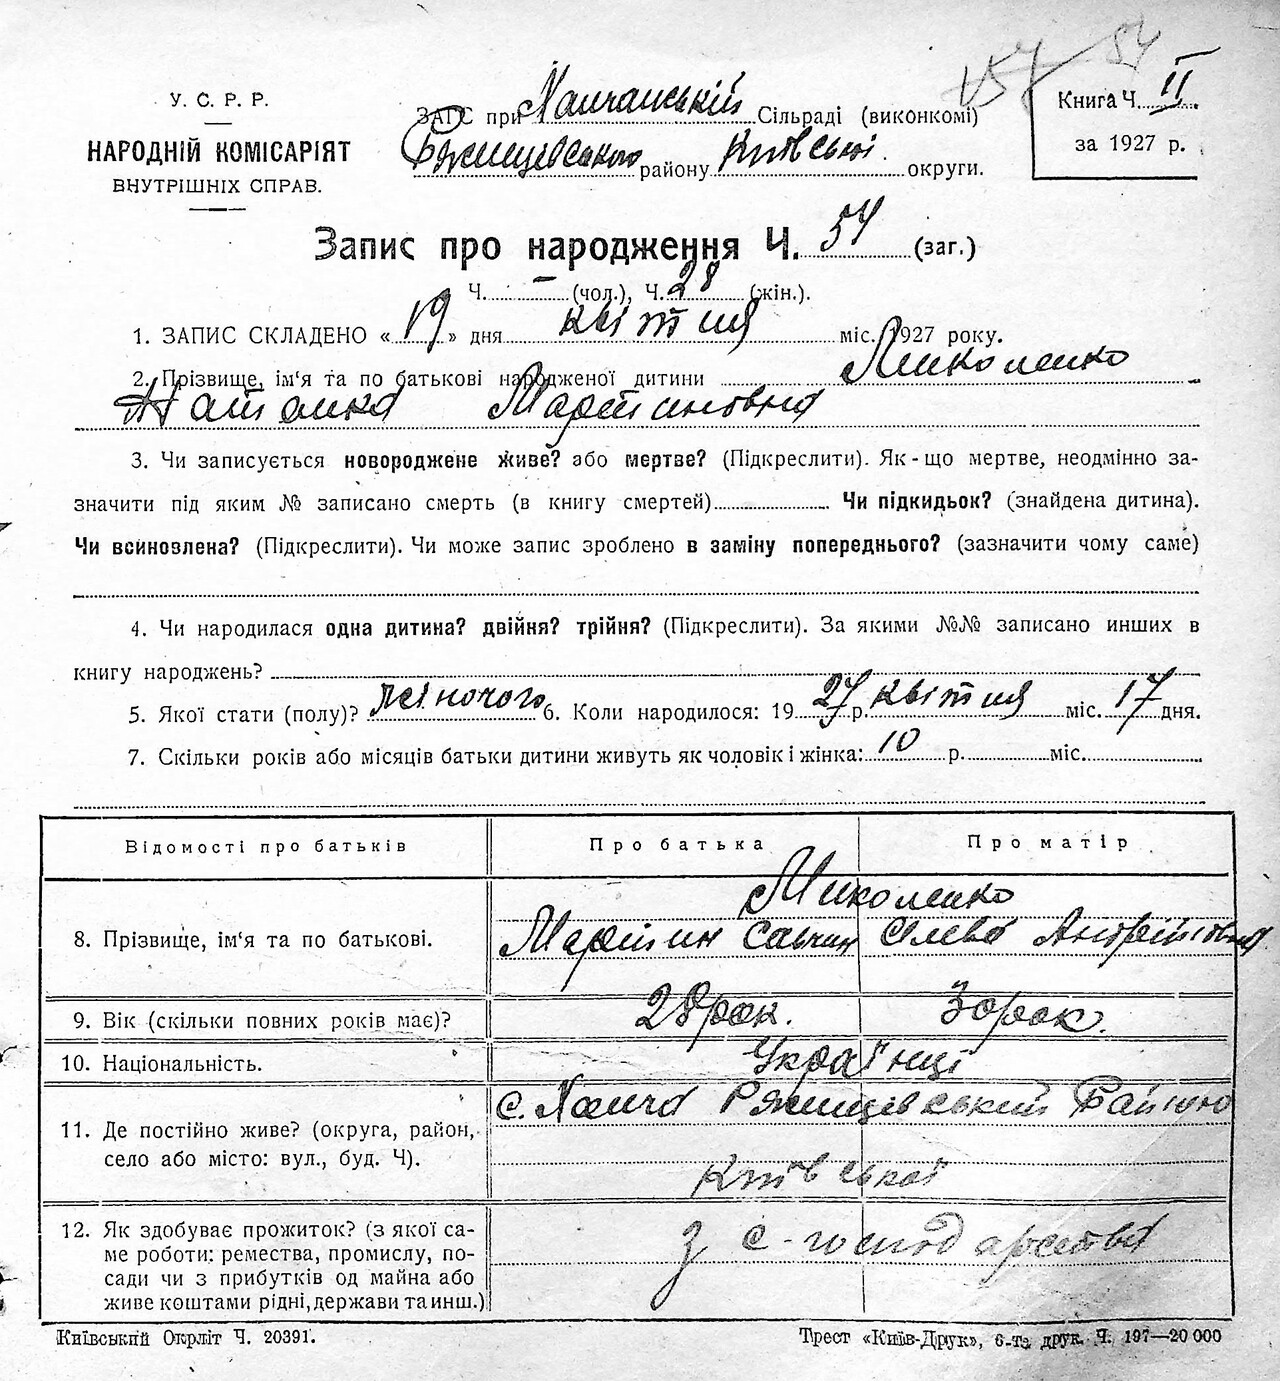 54
У. С. Р. Р.
НАРОДНІЙ КОМІСАРІЯТ
ВНУТРІШНІХ СПРАВ.
ЗАГС при Ханчанській Сільраді (виконкомі)
Ржищівського району Київської округи.
Книга Ч. II
за 1927 р.
Запис про народження Ч. 54 (заг.)
Ч. – (чол.), Ч. 28 (жін.).
1. ЗАПИС СКЛАДЕНО «19» дня квітня міс. 1927 року.
2. Прізвище, ім'я та по батькові народженої дитини Миколенко
Наталка Мартиновна
3. Чи записується новороджене живе? або мертве? (Підкреслити). Як-що мертве, неодмінно за-
значити під яким № записано смерть (в книгу смертей) Чи підкидьок? (знайдена дитина).
Чи всиновлена? (Підкреслити). Чи може запис зроблено в заміну попереднього? (зазначити чому саме)
4. Чи народилася одна дитина? двійня? трійня? (Підкреслити). За якими №№ записано инших в
книгу народжень?
5. Якої стати (полу)? жіночого 6. Коли народилося: 19 27 р. квітня міс. 17 дня.
7. Скільки років або місяців батьки дитини живуть як чоловік і жінка: 10 р. міс.
Відомості про батьків Про батька Про матір
Миколенко
8. Прізвище, ім'я та по батькові. Мартин Савчин Олева Андріївна
9. Вік (скільки повних років має)? 28 рок. 30 рок.
10. Національність. Українці
с. Ханча Ржищівський Району
11. Де постійно живе? (округа, район,
село або місто: вул., буд. Ч).
Київської
12. Як здобуває прожиток? (з якої са-
ме роботи: ремества, промислу, по-
сади чи з прибутків од майна або
живе коштами рідні, держави та инш.)
З с-господарства
Київський Окрліт Ч. 20391.
Трест «Київ-Друк», 6-та друк. Ч. 197—20 000